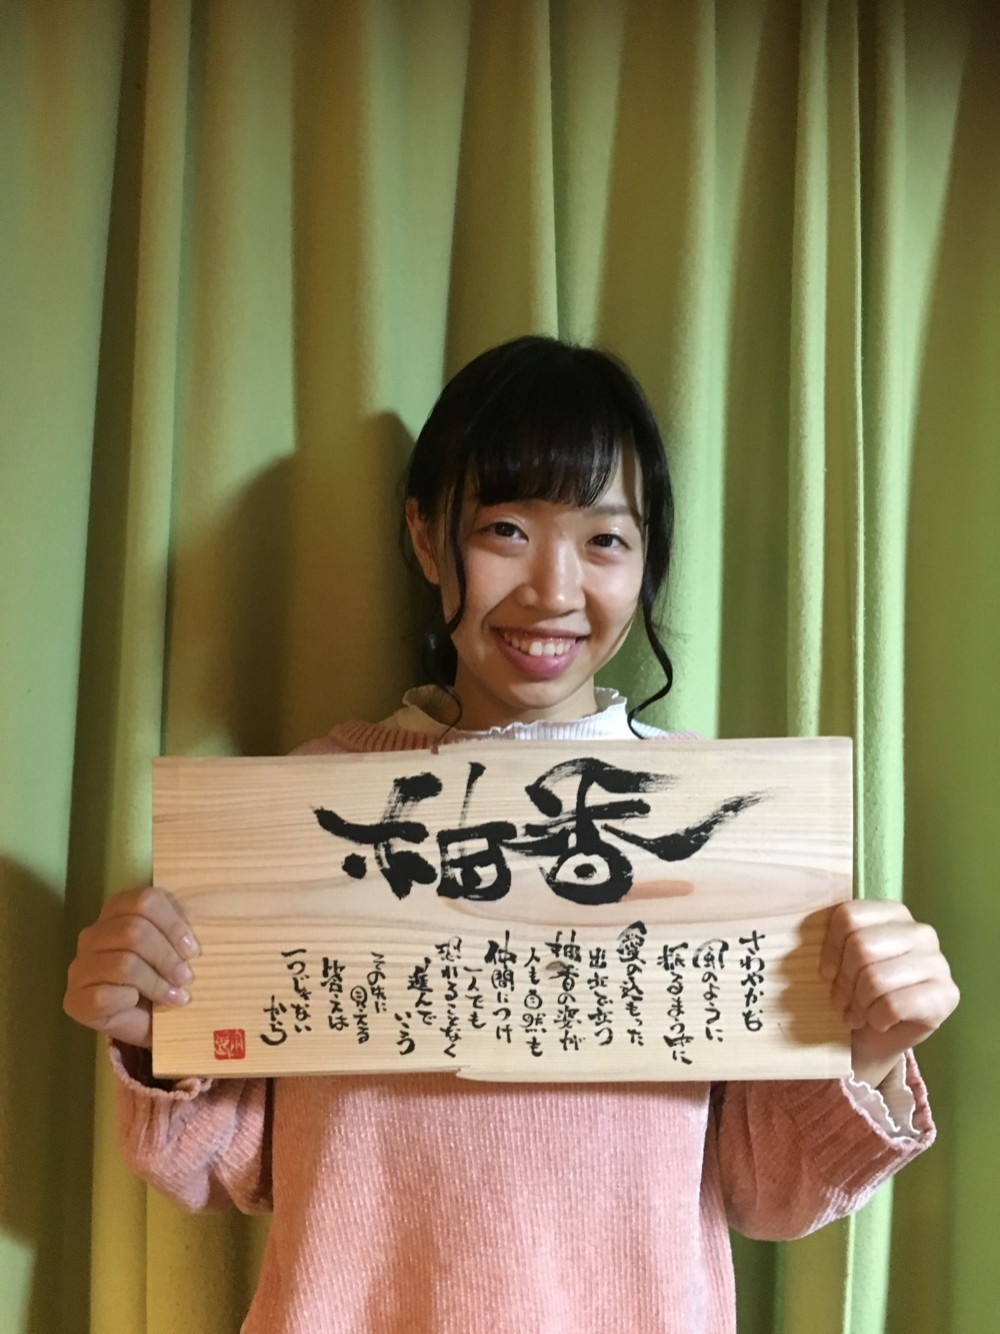 柚香
さわやかな
風のように
振るまう中に
愛の込もった
出会で立つ
柚香の姿が
人も自然も
仲間につけ
一人でも
恐れることなく
進んで
いこう
その先に
見える
答えは
一つじゃない
から